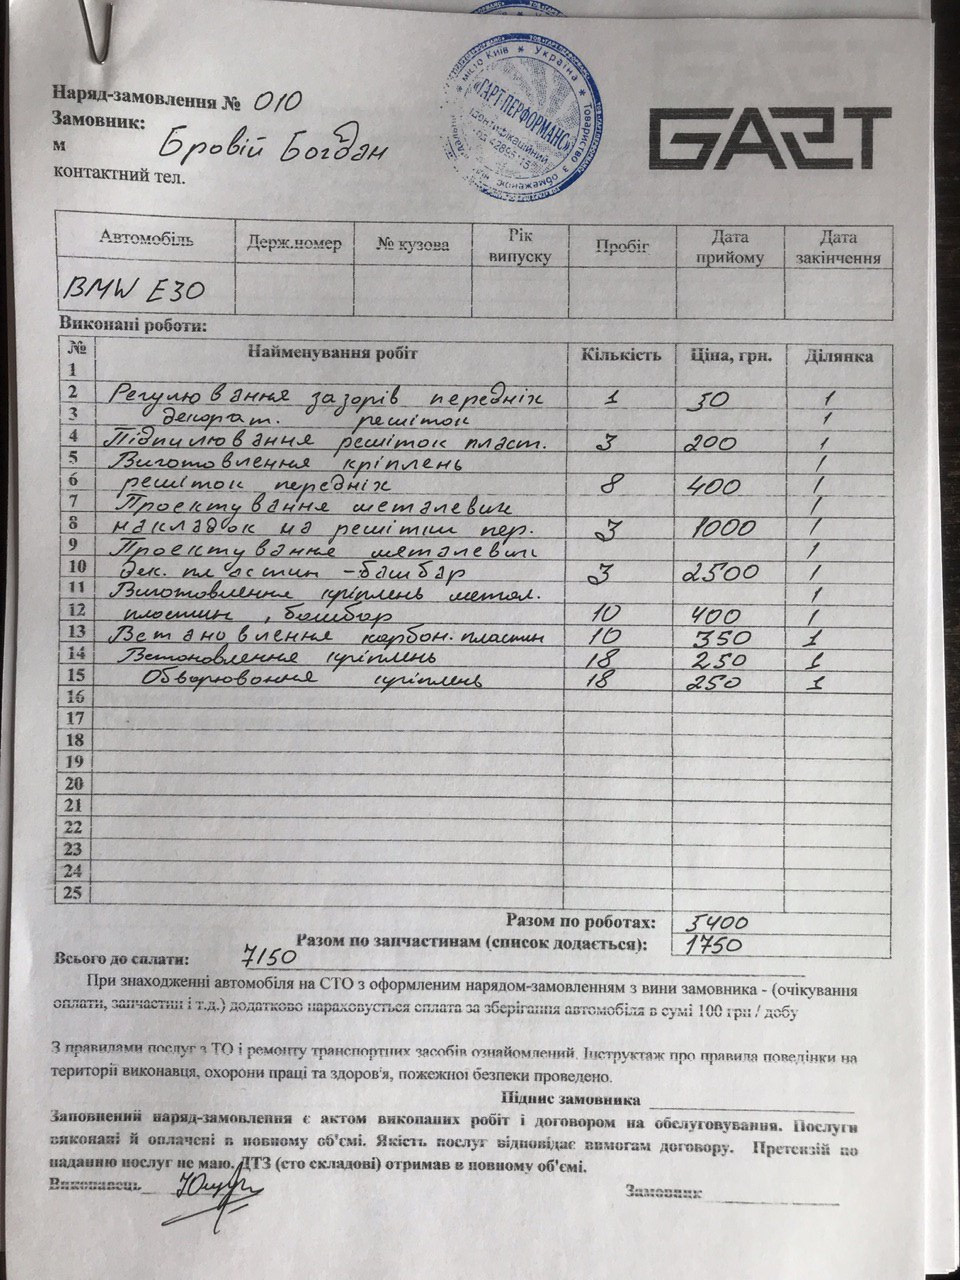 Наряд-замовлення № 010
Замовник:
м Бровій Богдан
контактний тел.
GART
місто Київ * Україна * Товариство з обмеженою
«ГАРТ-ПЕРФОРМАНС»
Ідентифікаційний
Автомобіль Держ.номер № кузова Рік випуску Пробіг Дата прийому Дата закінчення
BMW E30
Виконані роботи:
№ Найменування робіт Кількість Ціна, грн. Ділянка
1
2 Регулювання зазорів передніх 1 50 1
3 декорат. решіток 1
4 Підпилювання решіток пласт. 3 200 1
5 Виготовлення кріплень 1
6 решіток передніх 8 400 1
7 Проектування металевих 1
8 накладок на решітки пер. 3 1000 1
9 Проектування металевих 1
10 дек. пластин - башбар 3 2500 1
11 Виготовлення кріплень метал. 1
12 пластин, башбар 10 400 1
13 Встановлення карбон. пластин 10 350 1
14 Встановлення кріплень 18 250 1
15 Обварювання кріплень 18 250 1
16
17
18
19
20
21
22
23
24
25
Разом по роботах: 5400
Разом по запчастинам (список додається): 1750
Всього до сплати: 7150
При знаходженні автомобіля на СТО з оформленим нарядом-замовленням з вини замовника - (очікування
оплати, запчастин і т.д.) додатково нараховується сплата за зберігання автомобіля в сумі 100 грн / добу
З правилами послуг з ТО і ремонту транспортних засобів ознайомлений. Інструктаж про правила поведінки на
території виконавця, охорони праці та здоров'я, пожежної безпеки проведено.
Підпис замовника
Заповнений наряд-замовлення є актом виконаних робіт і договором на обслуговування. Послуги
виконані й оплачені в повному об'ємі. Якість послуг відповідає вимогам договору. Претензій по
наданню послуг не маю. ДТЗ (сто складові) отримав в повному об'ємі.
Виконавець
Замовник